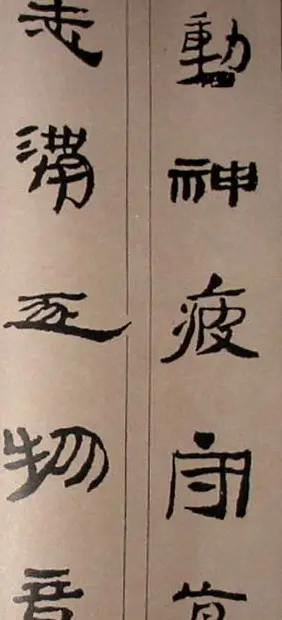 動神疲守真
志滿逐物意